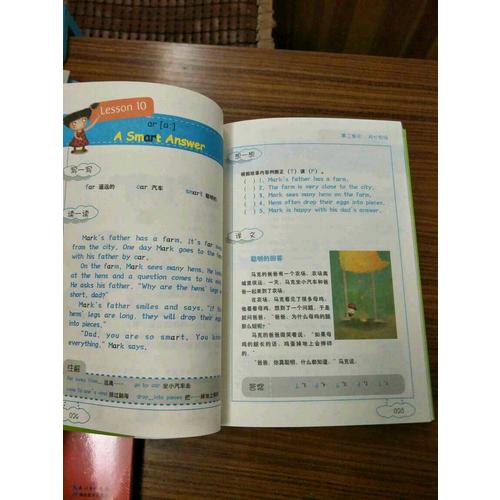 Lesson 10
ar [ɑː]
A Smart Answer
写一写
far 遥远的 car 汽车 smart 聪明的
读一读
Mark's father has a farm. It's far away
from the city. One day Mark goes to the farm
with his father by car.
On the farm, Mark sees many hens. He looks
at the hens and a question comes to his mind.
He asks his father, "Why are the hens' legs so
short, dad?"
Mark's father smiles and says, "If the
hens' legs are long, they will drop their eggs
into pieces."
"Dad, you are so smart. You know
everything," Mark says.
注解
far away from 远离 go by car 坐小汽车去
drop...into pieces 把
024
想一想
根据故事内容判断正（T）误（F）。
( ) 1. Mark's father has a farm.
( ) 2. The farm is very close to the city.
( ) 3. Mark sees many hens on the farm.
( ) 4. Hens often drop their eggs into pieces.
( ) 5. Mark is happy with his dad's answer.
译文
聪明的回答
马克的爸爸有一个农场。农场离
城里很远。一天，马克坐小汽车和爸
爸一起来到了农场。
在农场，马克看见了很多母鸡。
他看着母鸡，想到了一个问题，于是
就问爸爸，“爸爸，为什么母鸡的腿
那么短呢？”
马克的爸爸微笑着说：“如果母
鸡的腿长的话，鸡蛋掉地上会摔碎
的。”
“爸爸，你真聪明，什么都知道。”马克说。
答案
025